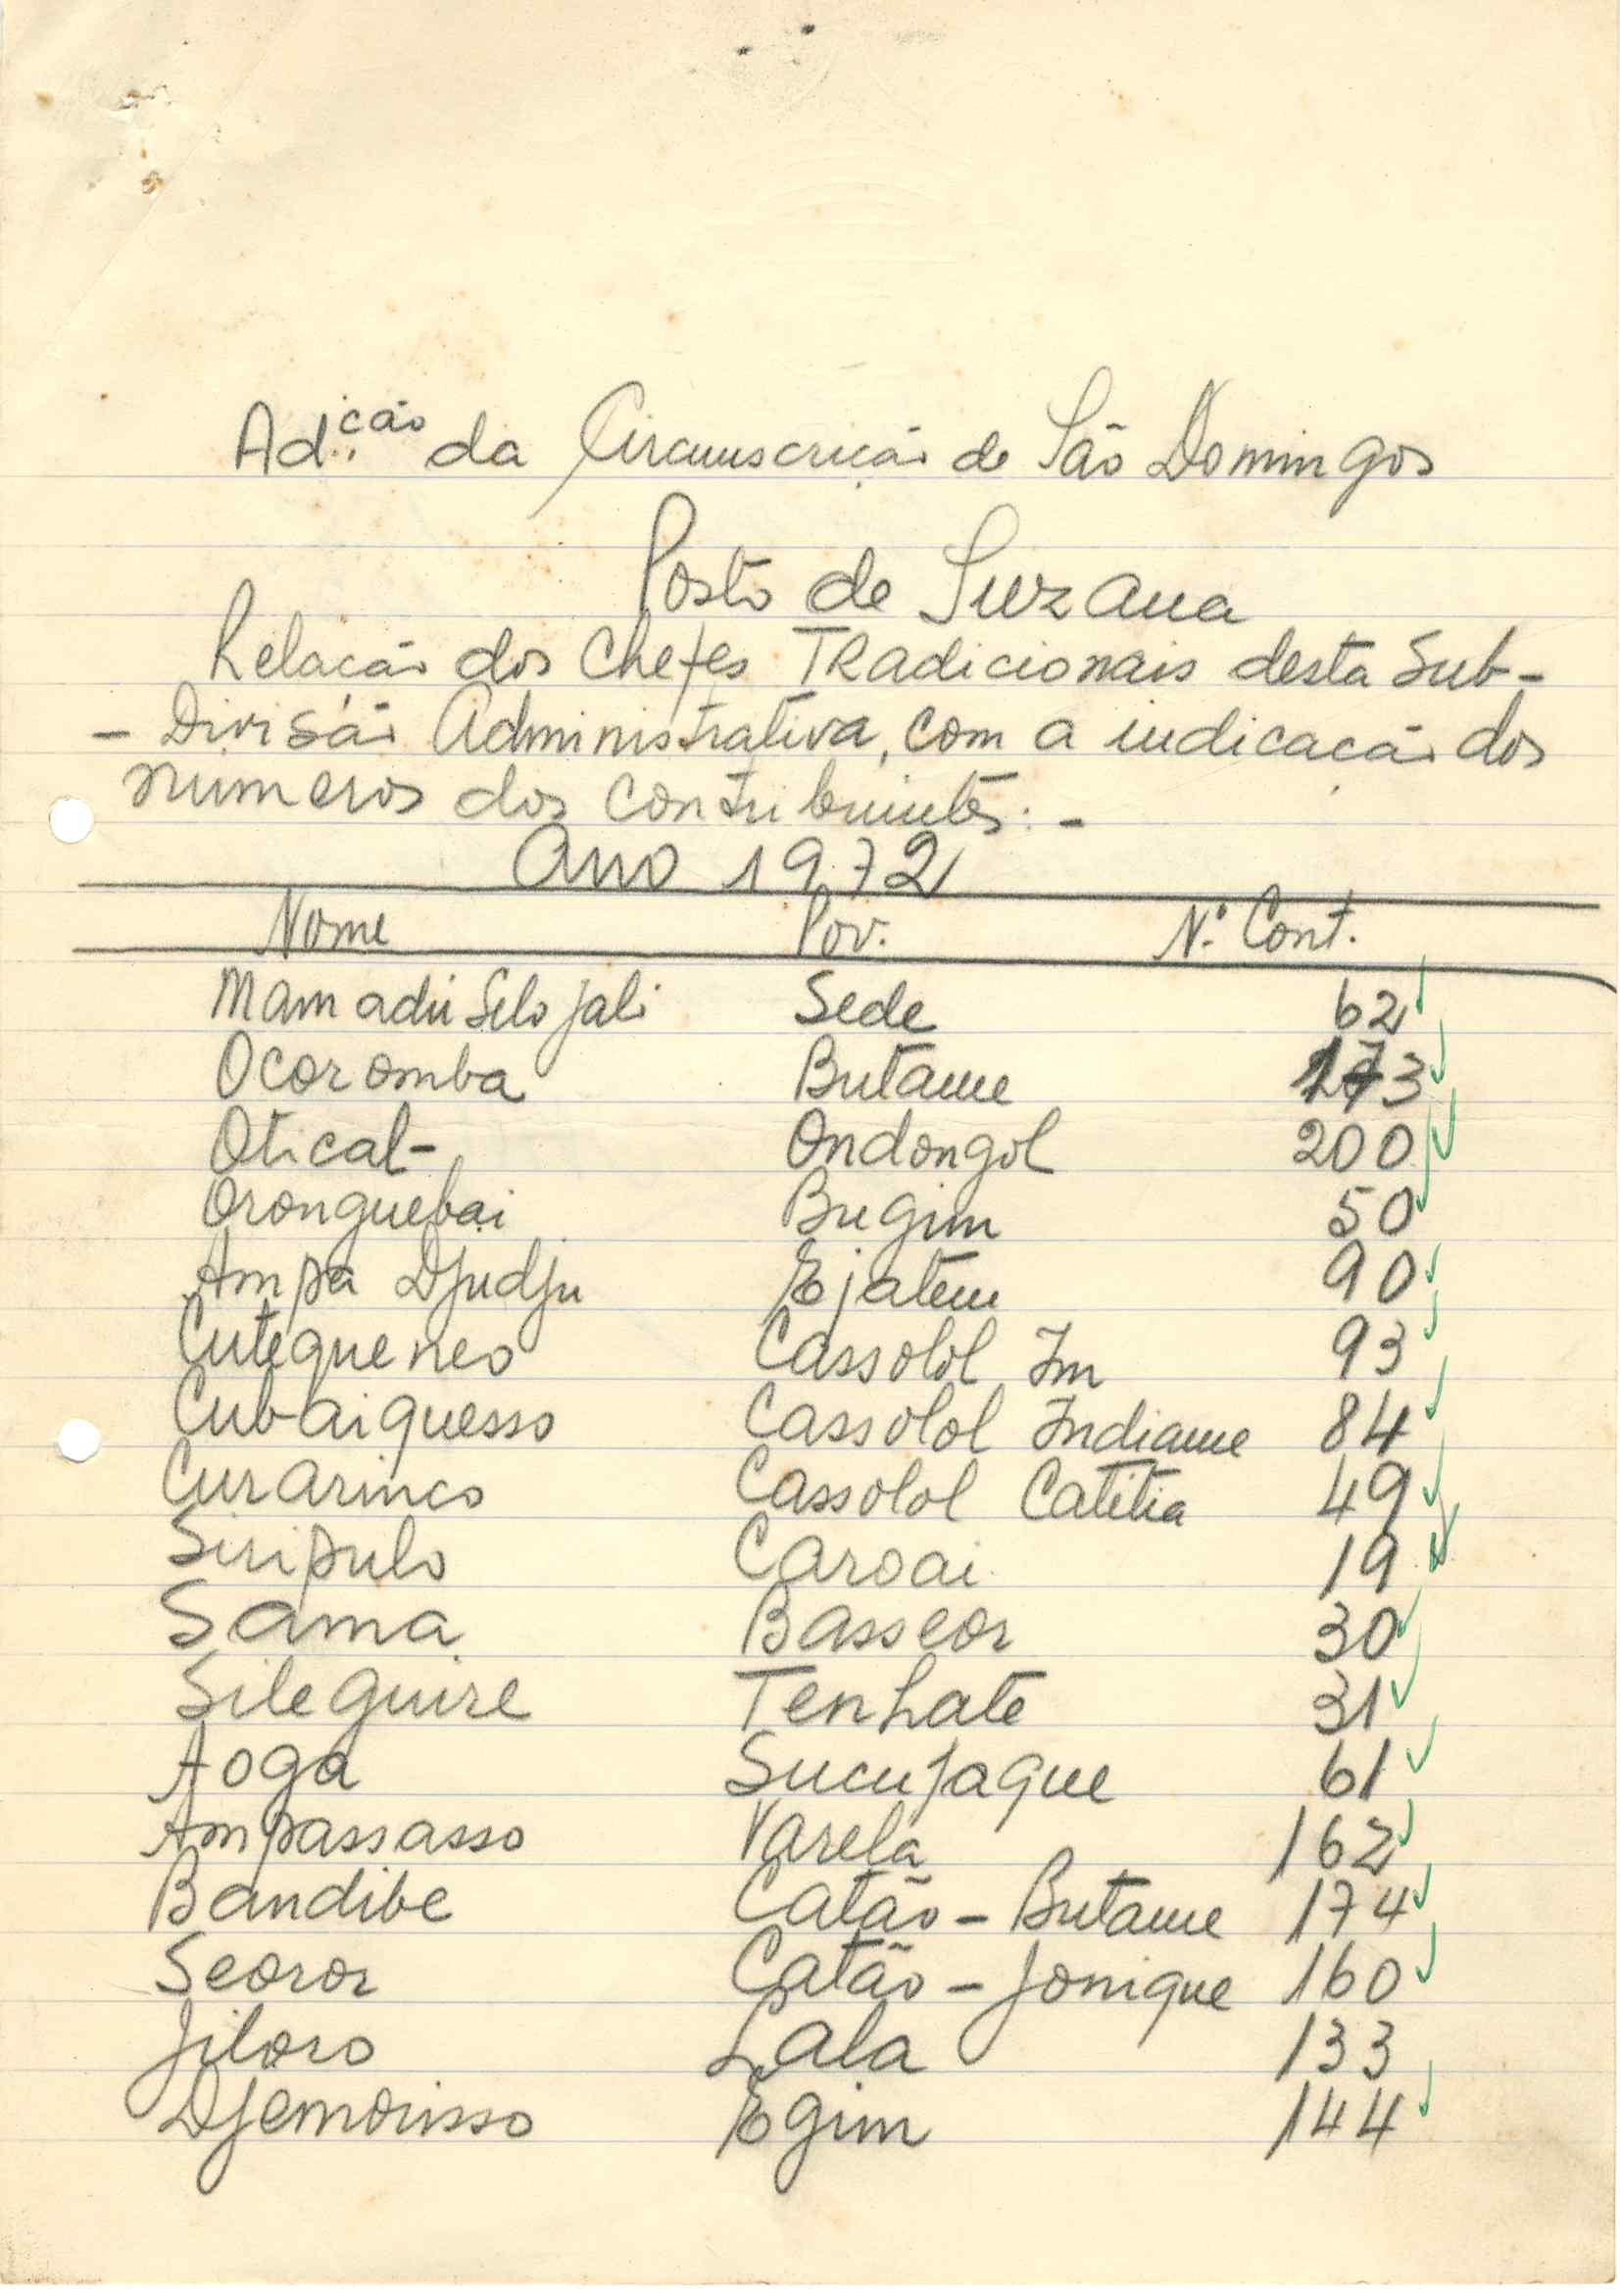 Ad.ção da Circunscrição de São Domingos
Posto de Suzana
Relacão dos Chefes Tradicionais desta Sub-
- Divisão Administrativa, com a indicacão dos
números dos contribuintes: -
Ano 1972
Nome Pov. N.º Cont.
Mamadú Selo Jali Sede 62
Ocoromba Butame 173
Otical- Ondongol 200
Oronguebai Bugim 50
Ampa Djudju Ejatem 90
Cutequeneo Cassolol Im 93
Cubaiquesso Cassolol Indiame 84
Curarinco Cassolol Catitia 49
Siripulo Caroai 19
Sama Basseor 30
Sileguire Tenhate 31
Aoga Sucujaque 61
Ampassasso Varela 162
Bandibe Catão - Butame 174
Seoror Catão - Jonique 160
Jiloro Lala 133
Djemorisso Egim 144